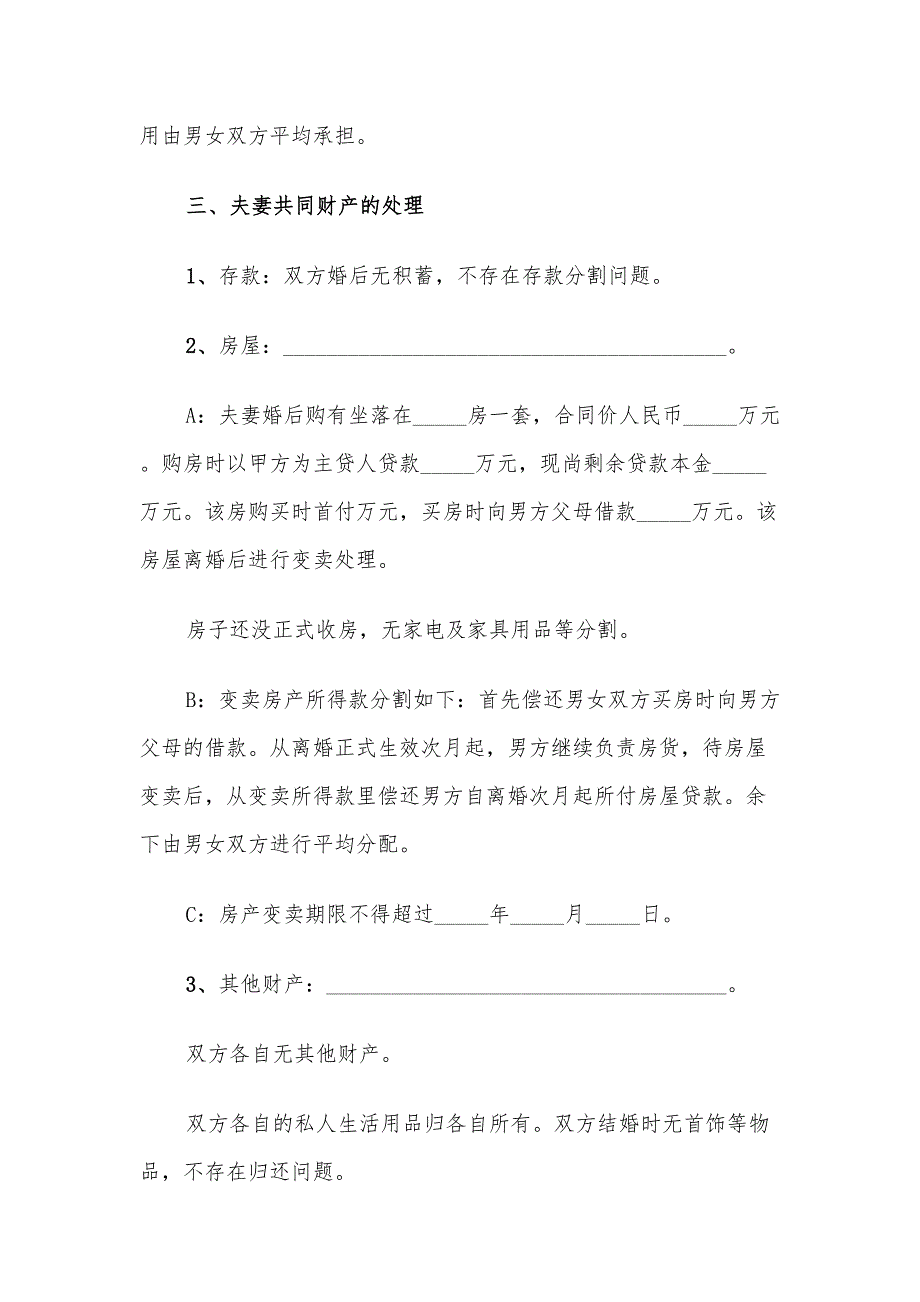 用由男女双方平均承担。
三、夫妻共同财产的处理
1、存款：双方婚后无积蓄，不存在存款分割问题。
2、房屋：_________________________________________。
A：夫妻婚后购有坐落在_____房一套，合同价人民币_____万元
。购房时以甲方为主贷人贷款_____万元，现尚剩余贷款本金_____
万元。该房购买时首付万元，买房时向男方父母借款_____万元。该
房屋离婚后进行变卖处理。
房子还没正式收房，无家电及家具用品等分割。
B：变卖房产所得款分割如下：首先偿还男女双方买房时向男方
父母的借款。从离婚正式生效次月起，男方继续负责房货，待房屋
变卖后，从变卖所得款里偿还男方自离婚次月起所付房屋贷款。余
下由男女双方进行平均分配。
C：房产变卖期限不得超过_____年_____月_____日。
3、其他财产：_____________________________________。
双方各自无其他财产。
双方各自的私人生活用品归各自所有。双方结婚时无首饰等物
品，不存在归还问题。